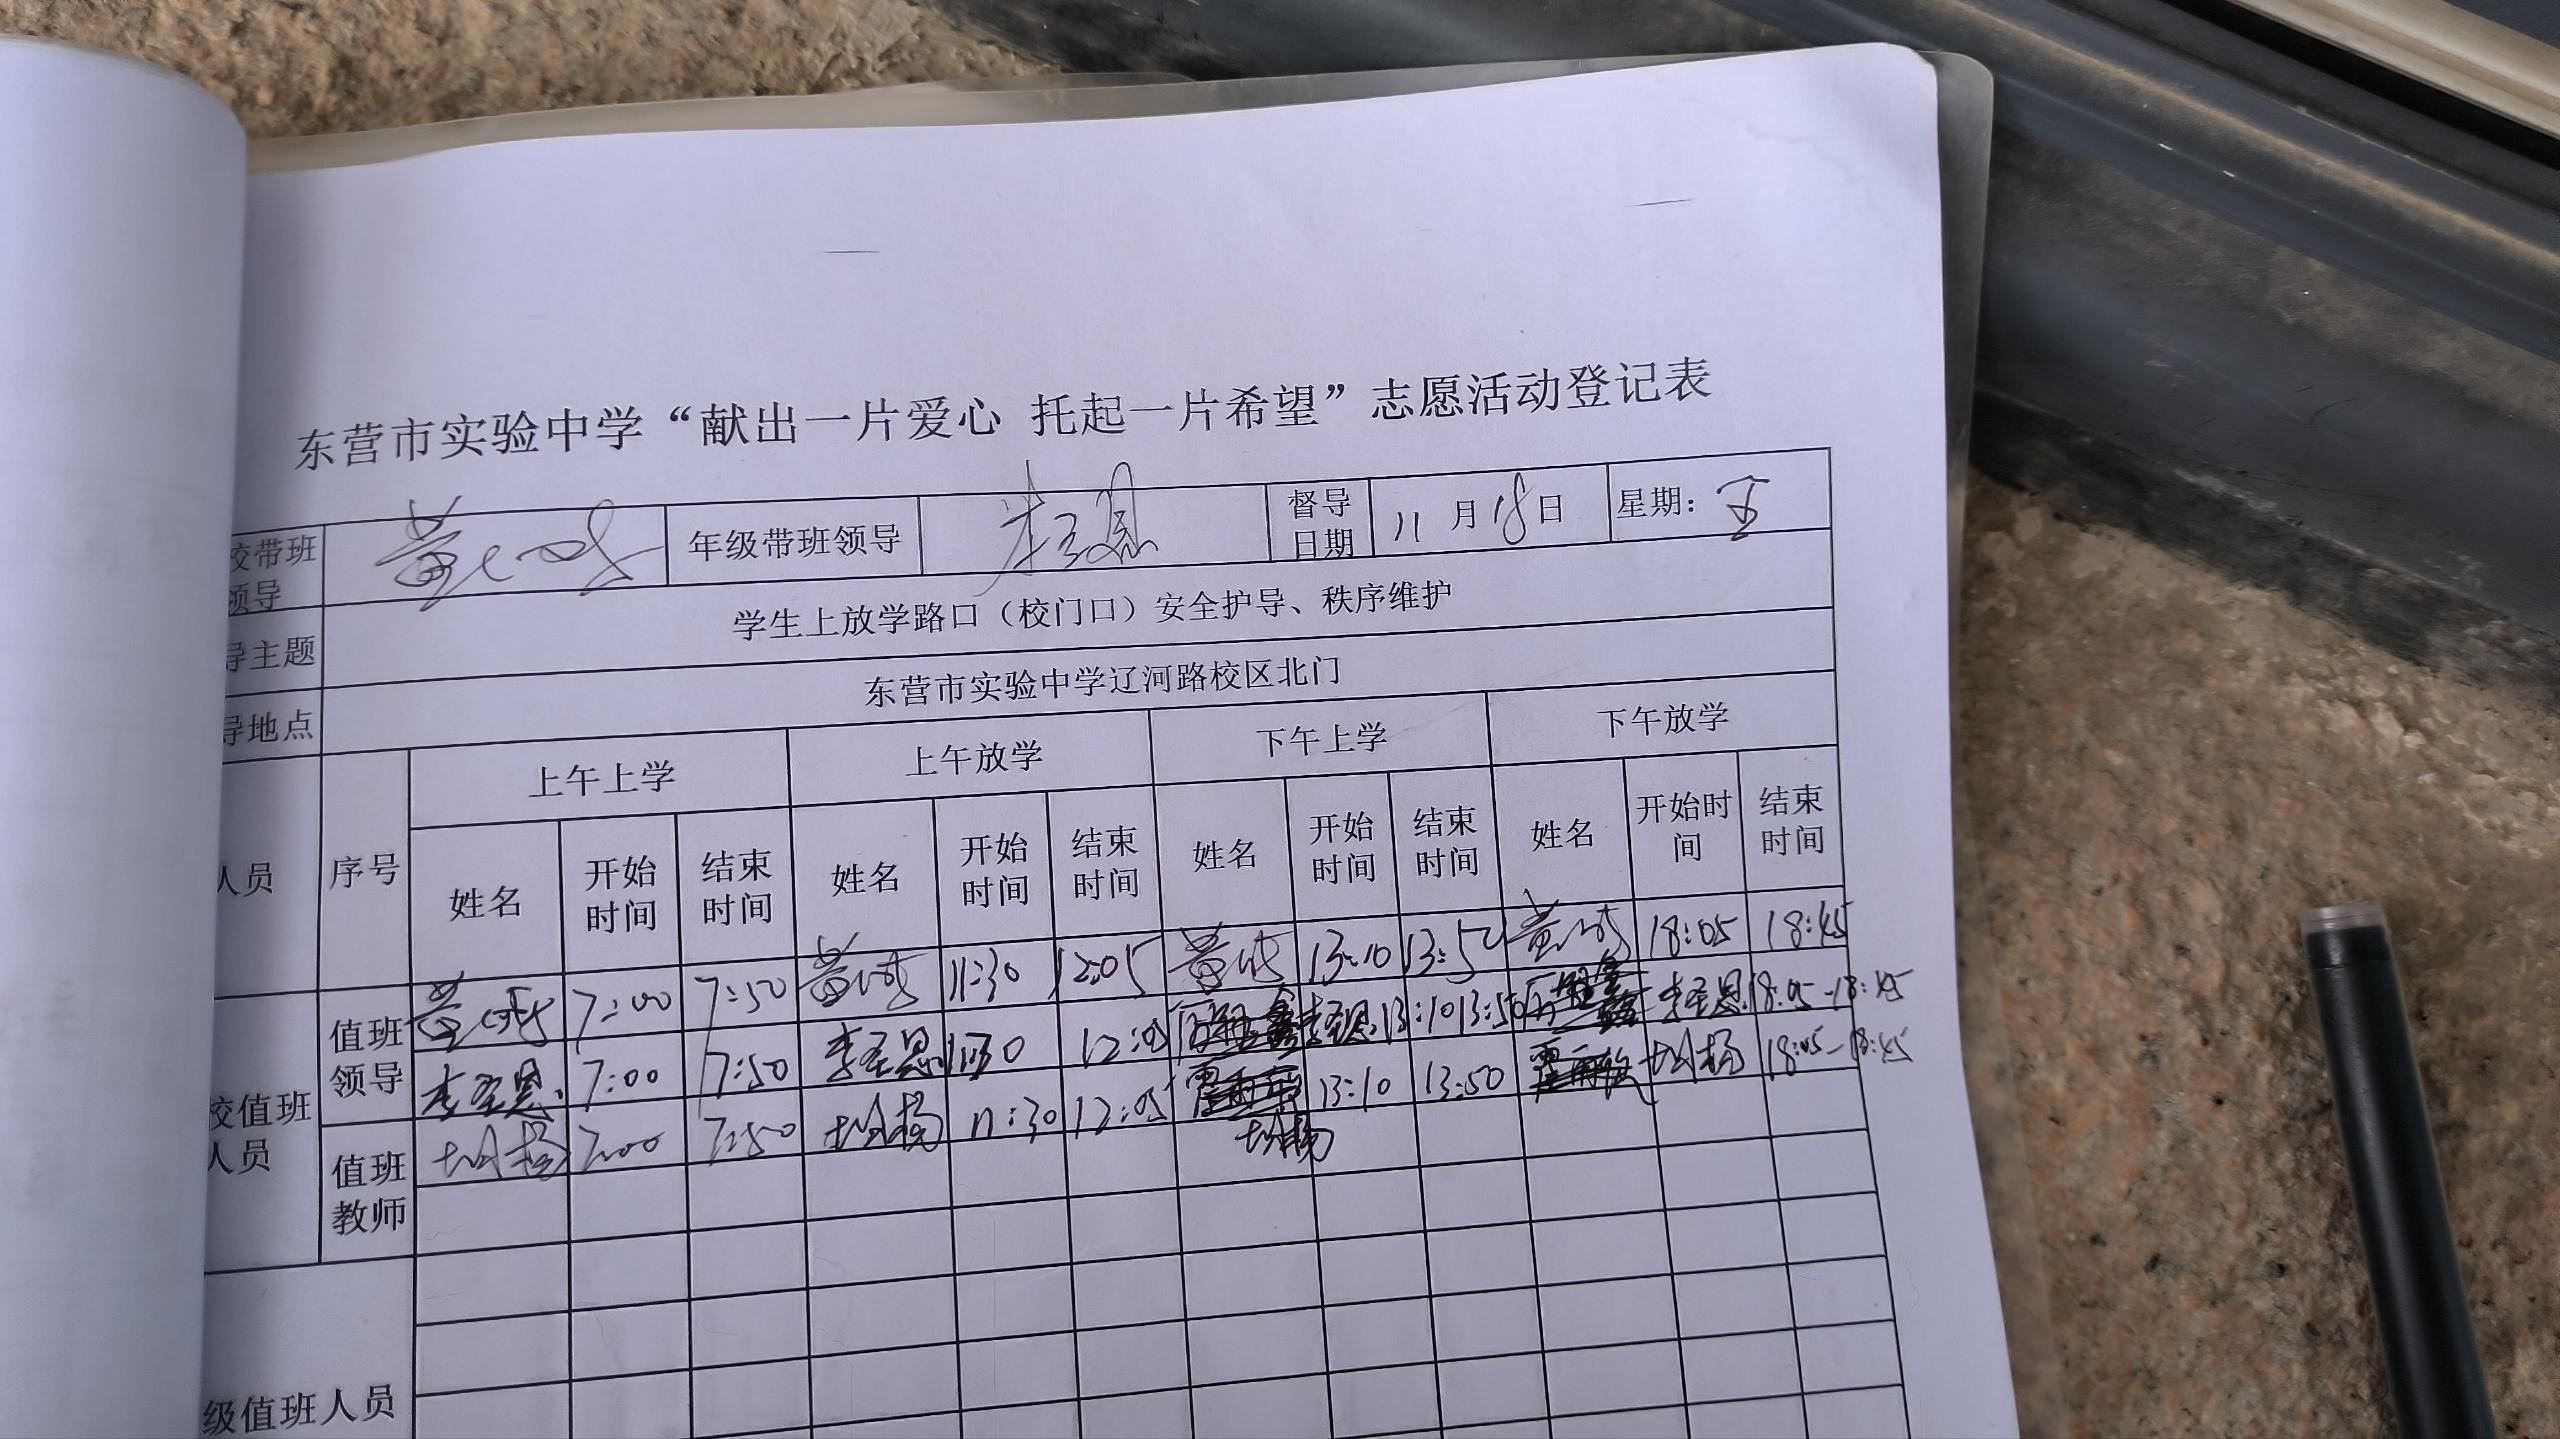 东营市实验中学“献出一片爱心 托起一片希望”志愿活动登记表
校带班领导 年级带班领导 督导日期 11月18日 星期：五
导主题 学生上放学路口（校门口）安全护导、秩序维护
导地点 东营市实验中学辽河路校区北门
人员 序号 上午上学 上午放学 下午上学 下午放学
姓名 开始时间 结束时间 姓名 开始时间 结束时间 姓名 开始时间 结束时间 姓名 开始时间 结束时间
校值班人员 值班领导 7:00 7:50 11:30 12:05 13:10 13:50 18:05 18:45
李圣恩 7:00 7:50 李圣恩 11:30 12:05 李圣恩 13:10 13:50 李圣恩 18:05-18:45
值班教师 7:00 7:50 11:30 12:05 13:10 13:50 18:05-18:45
级值班人员